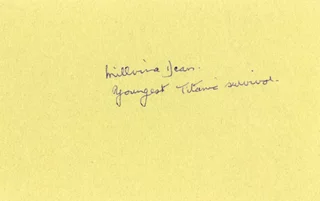 Millvina Dean.
Youngest Titanic survivor.